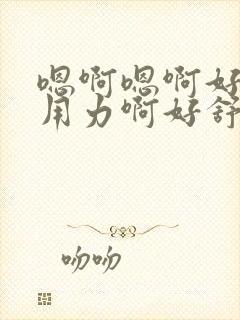 嗯啊嗯啊好
用力啊好舒
吻吻